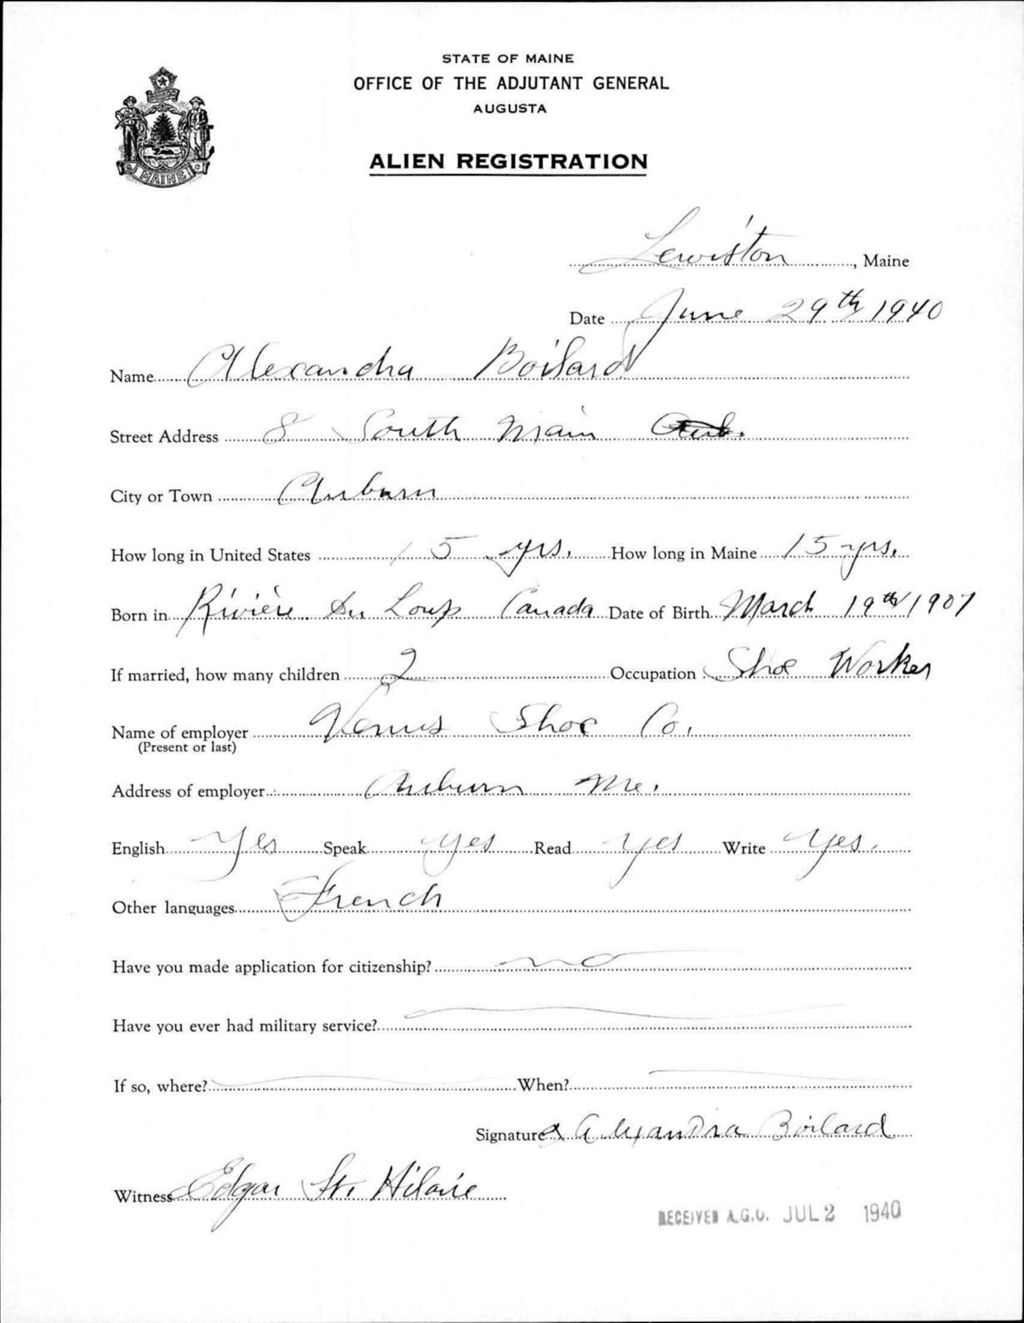 STATE OF MAINE
OFFICE OF THE ADJUTANT GENERAL
AUGUSTA
ALIEN REGISTRATION
MAINE
Lewiston, Maine
Date June 29th 1940
Name Alexandra Boilard
Street Address 8 South Main
City or Town Auburn
How long in United States 15 yrs. How long in Maine 15 yrs.
Born in Rivière Du Loup Canada Date of Birth March 19th 1907
If married, how many children 2 Occupation Shoe Worker
Name of employer Venus Shoe Co.
(Present or last)
Address of employer Auburn Me.
English Yes Speak yes Read yes Write Yes.
Other languages French
Have you made application for citizenship? no
Have you ever had military service?
If so, where? When?
Signature Alexandra Boilard
Witness Edgar St. Hilaire
RECEIVED A.G.O. JUL 2 1940